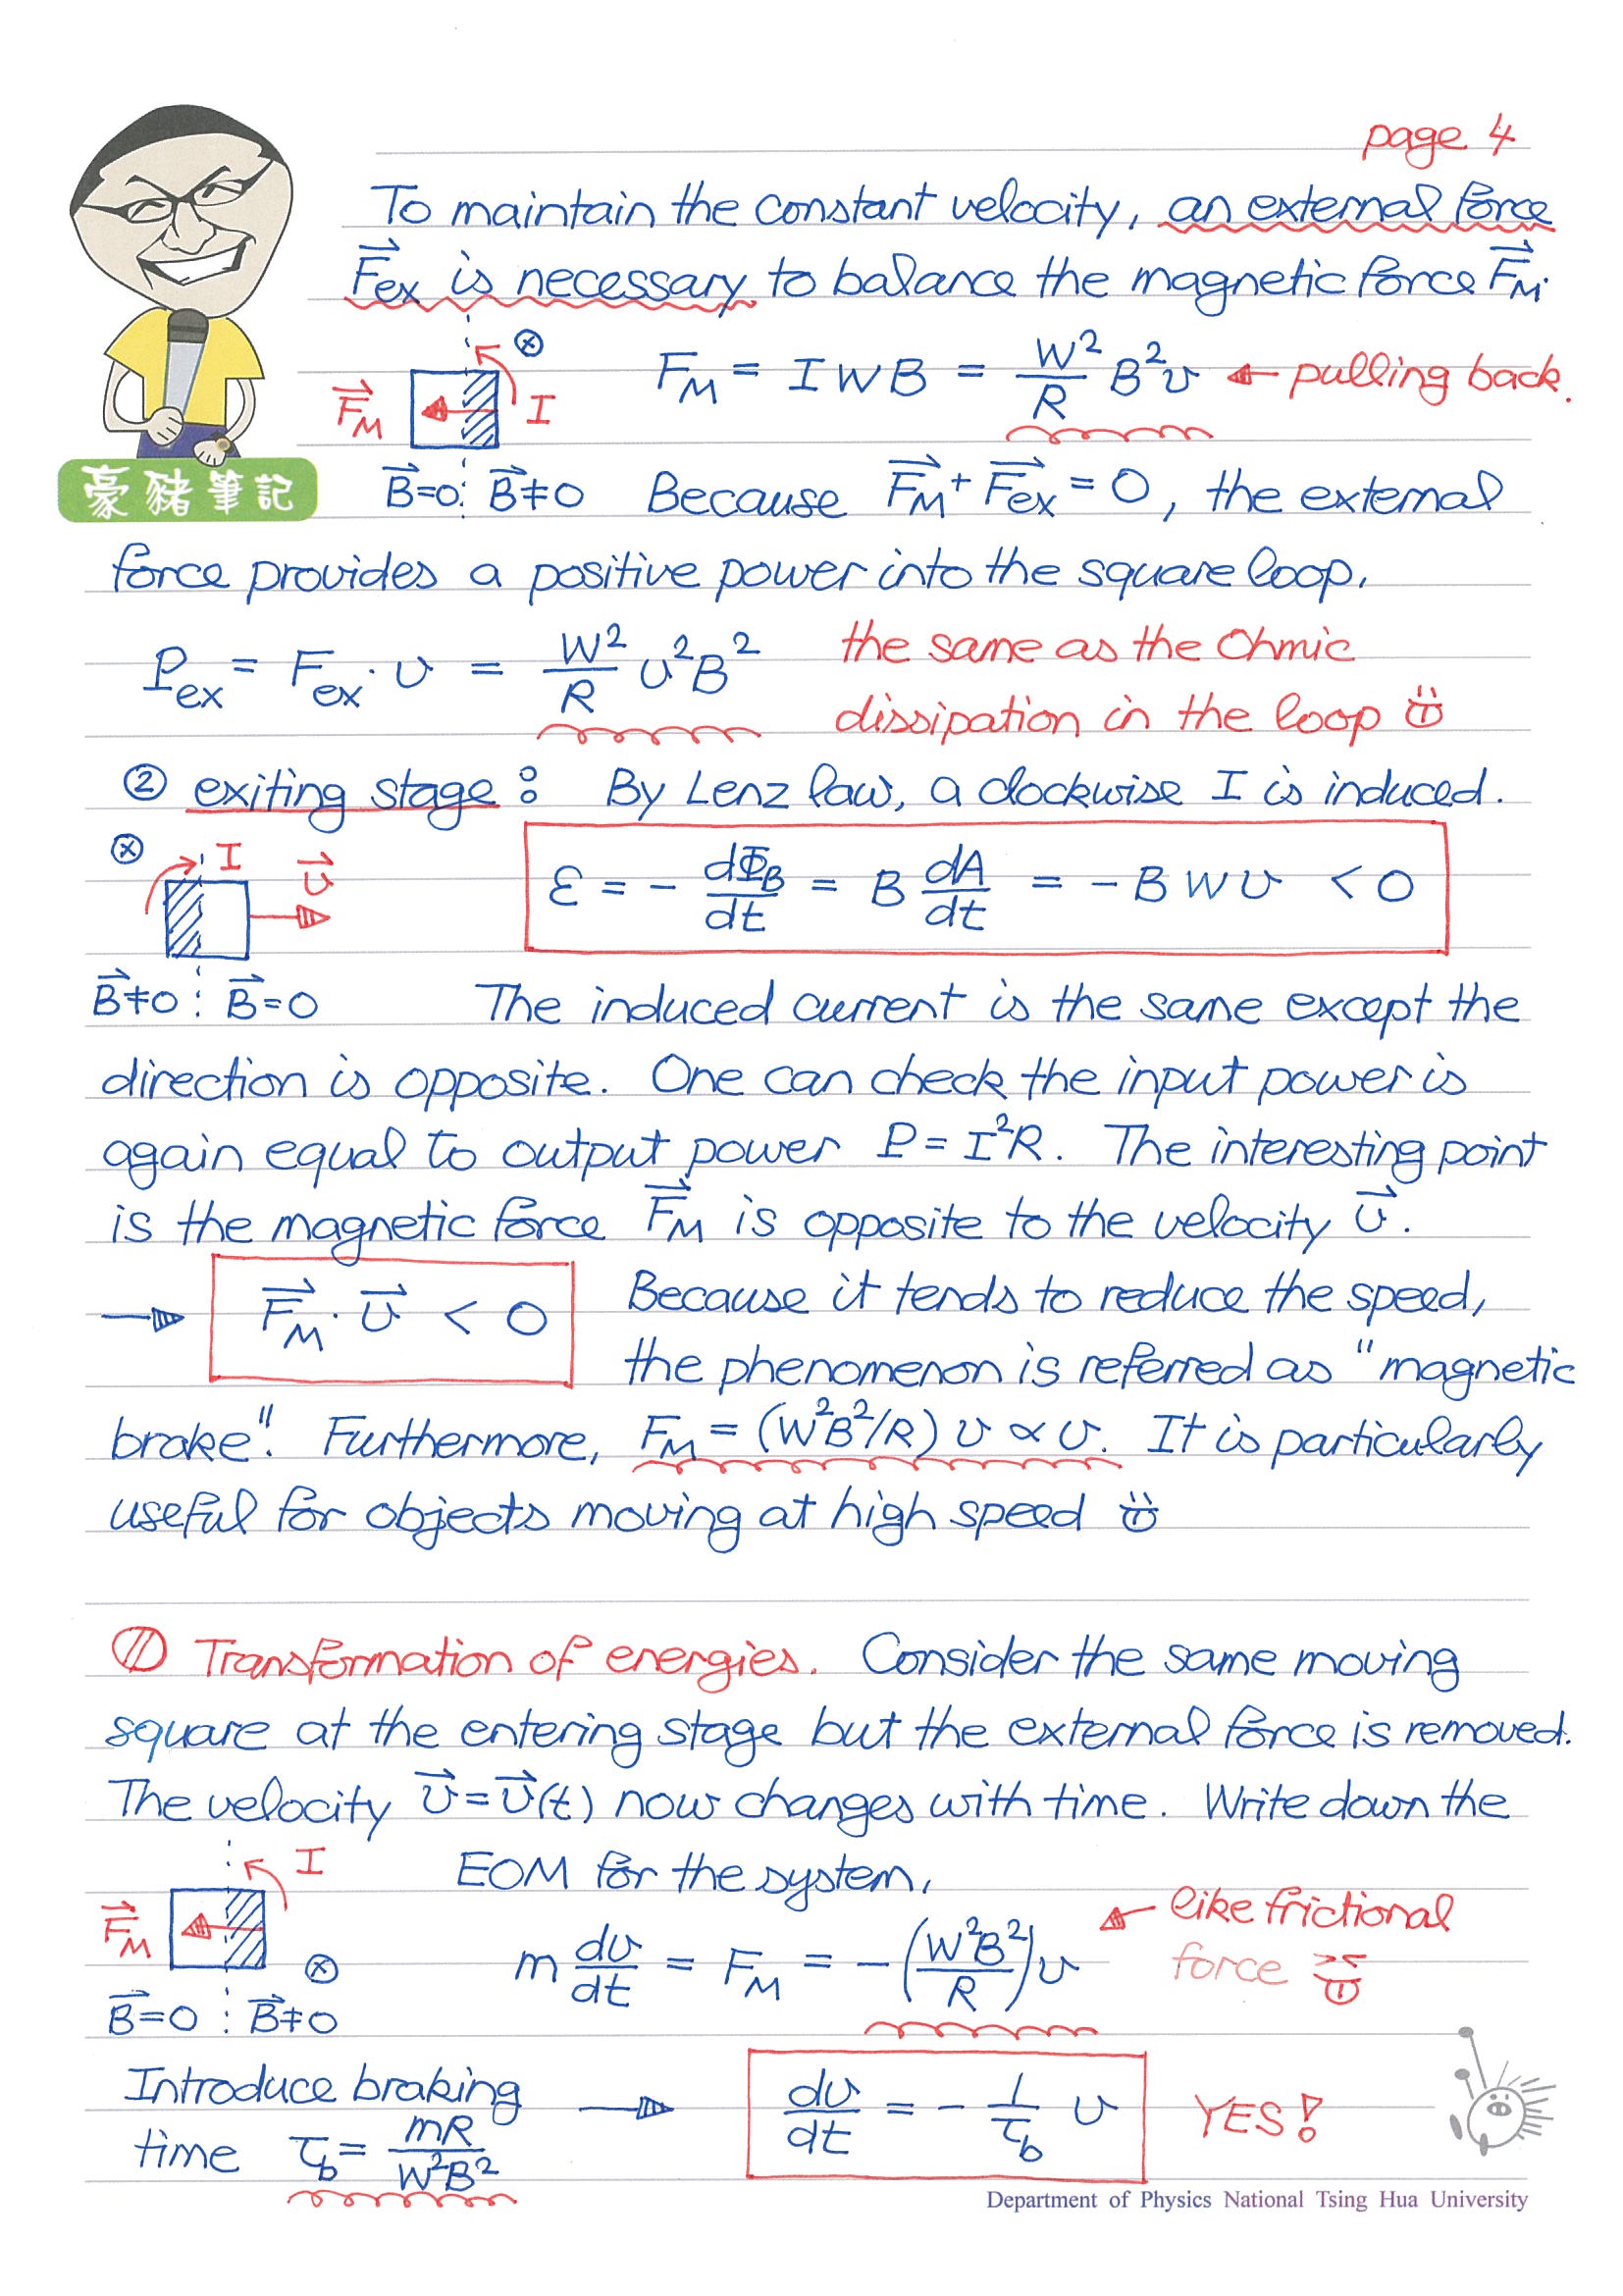 page 4
To maintain the constant velocity, an external force
F⃗ex is necessary to balance the magnetic force F⃗M.
⊗
F⃗M I
FM = I W B = W²/R B²v ← pulling back.
豪豬筆記
B⃗=0 B⃗≠0 Because F⃗M + F⃗ex = 0, the external
force provides a positive power into the square loop,
Pex = Fex · v = W²/R v²B² the same as the Ohmic
dissipation in the loop
② exiting stage : By Lenz law, a clockwise I is induced.
⊗ I v⃗
ε = - dΦB/dt = B dA/dt = - B W v < 0
B⃗≠0 B⃗=0 The induced current is the same except the
direction is opposite. One can check the input power is
again equal to output power P = I²R. The interesting point
is the magnetic force F⃗M is opposite to the velocity v⃗.
→ F⃗M · v⃗ < 0 Because it tends to reduce the speed,
the phenomenon is referred as "magnetic
brake". Furthermore, FM = (W²B²/R) v ∝ v. It is particularly
useful for objects moving at high speed
Transformation of energies. Consider the same moving
square at the entering stage but the external force is removed.
The velocity v⃗=v⃗(t) now changes with time. Write down the
I EOM for the system,
F⃗M ⊗
m dv/dt = FM = -(W²B²/R)v ← like frictional
force
B⃗=0 B⃗≠0
Introduce braking → dv/dt = - 1/τb v YES!
time τb = mR/W²B²
Department of Physics National Tsing Hua University